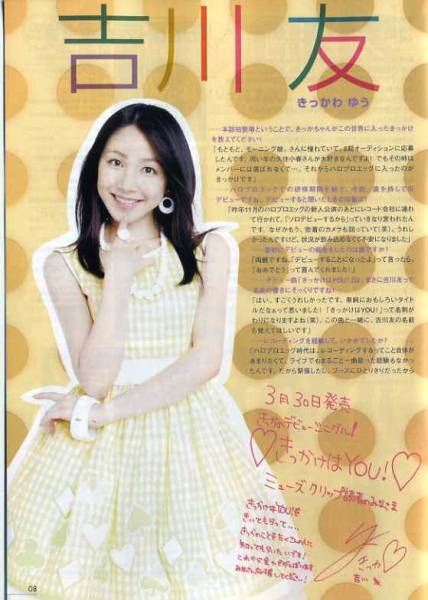 吉川友
きっかわ ゆう
――本誌初登場ということで、きっかちゃんがこの世界に入ったきっかけ
を教えてください!
「もともと、モーニング娘。さんに憧れていて、8期オーディションに応
募したんです。同い年の久住小春さんが大好きなんですよ! でもその時は
メンバーには選ばれなくて…。それからハロプロエッグに入ったのが
きっかけです」
――ハロプロエッグでの研修期間を経て、今回、満を持しての
デビューですね。デビューすると聞いたときの印象は?
「昨年11月のハロプロエッグの新人公演のあとにレコード会社に連れ
て行かれて、「ソロデビューするから」っていきなり言われたんで
す。なぜかもう、密着のカメラも回っていて(笑)。うれし
かったんですけど、状況が飲み込めなくて不安になりました」
「両親ですね。「デビューすることになったよ」って言ったら、
「おめでとう」って喜んでくれました!」
――デビュー曲「きっかけはYOU!」は、まさに吉川友って
「はい、すごくうれしかったです。単純におもしろいタイト
ルだなぁって思いました! 「きっかけはYOU!」って名刺が
わりになりますよね(笑)。この曲と一緒に、吉川友の名前
も覚えてほしいです」
――レコーディングを経験して、いかがでしたか?
「ハロプロエッグ時代は、レコーディングするってこと自体が
あまりなくて、ライブでもまるごと一曲歌った経験もなかっ
たんです。だから緊張したし、ブースにひとりきりだったから
3月30日発売
きっかのデビューシングル!
♡きっかけはYOU!♡
ミューズクリップ読者のみなさま
きっかけはYOU!を
きっか
吉川 友
08